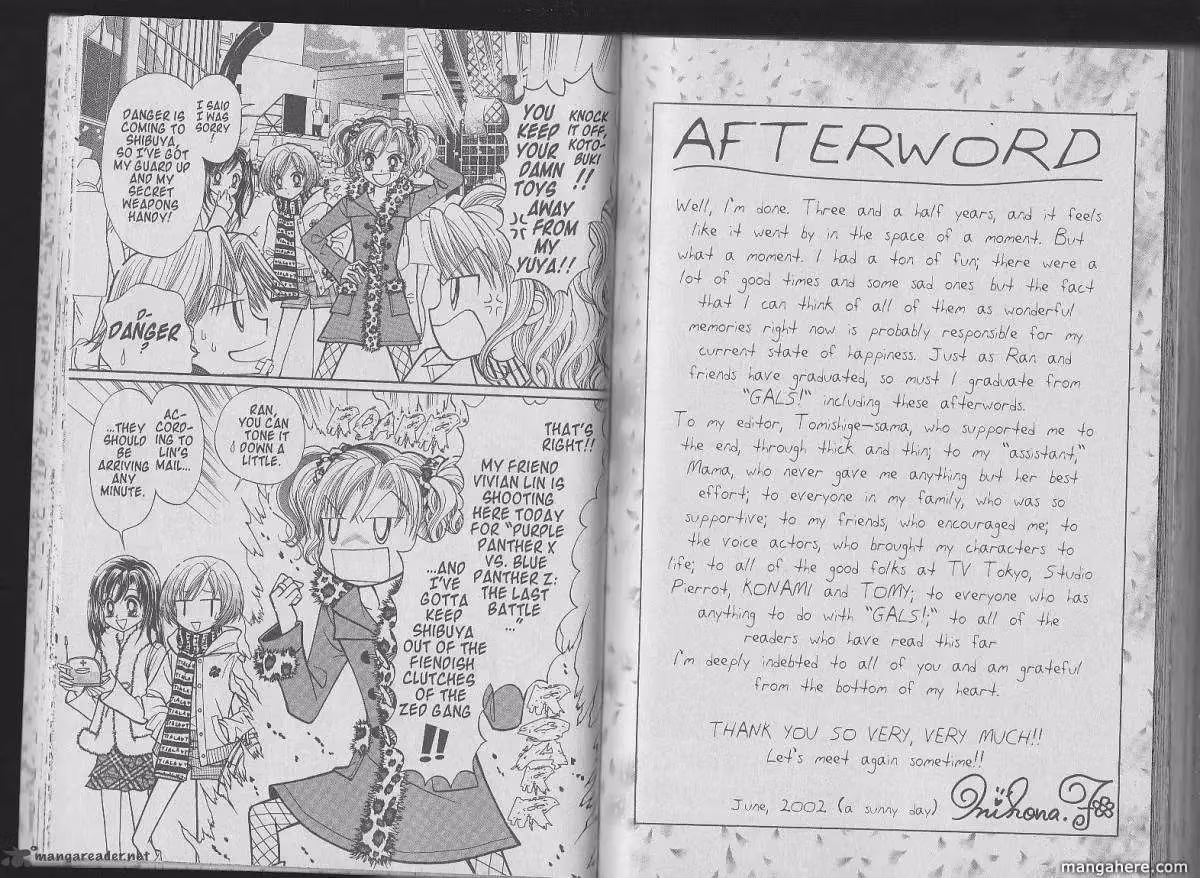 KNOCK
IT OFF,
KOTO-
BUKI
!!
YOU
KEEP
YOUR
DAMN
TOYS
AWAY
FROM
MY
YUYA!!
I SAID
I WAS
SORRY
!
DANGER IS
COMING TO
SHIBUYA,
SO I'VE GOT
MY GUARD UP
AND MY
SECRET
WEAPONS
HANDY!
D-
DANGER
?
THAT'S
RIGHT!!
MY FRIEND
VIVIAN LIN IS
SHOOTING
HERE TODAY
FOR "PURPLE
PANTHER X
VS. BLUE
PANTHER Z:
THE LAST
BATTLE
..."
...AND
I'VE
GOTTA
KEEP
SHIBUYA
OUT OF THE
FIENDISH
CLUTCHES
OF THE
ZED GANG
!!
RAN,
YOU CAN
TONE IT
DOWN A
LITTLE.
AC-
CORD-
ING TO
LIN'S
MAIL...
...THEY
SHOULD
BE
ARRIVING
ANY
MINUTE.
mangareader.net
AFTERWORD
Well, I'm done. Three and a half years, and it feels
like it went by in the space of a moment. But
what a moment. I had a ton of fun; there were a
lot of good times and some sad ones but the fact
that I can think of all of them as wonderful
memories right now is probably responsible for my
current state of happiness. Just as Ran and
friends have graduated, so must I graduate from
"GALS!" including these afterwords.
To my editor, Tomishige-sama, who supported me to
the end, through thick and thin; to my "assistant,"
Mama, who never gave me anything but her best
effort; to everyone in my family, who was so
supportive; to my friends, who encouraged me; to
the voice actors, who brought my characters to
life; to all of the good folks at TV Tokyo, Studio
Pierrot, KONAMI and TOMY; to everyone who has
anything to do with "GALS!;" to all of the
readers who have read this far
I'm deeply indebted to all of you and am grateful
from the bottom of my heart.
THANK YOU SO VERY, VERY MUCH!!
Let's meet again sometime!!
June, 2002 (a sunny day) Mihona. F
mangahere.com